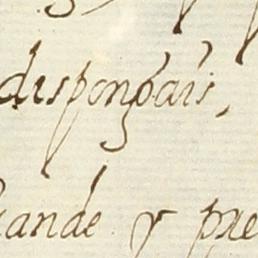 dispongais,
ande y pre